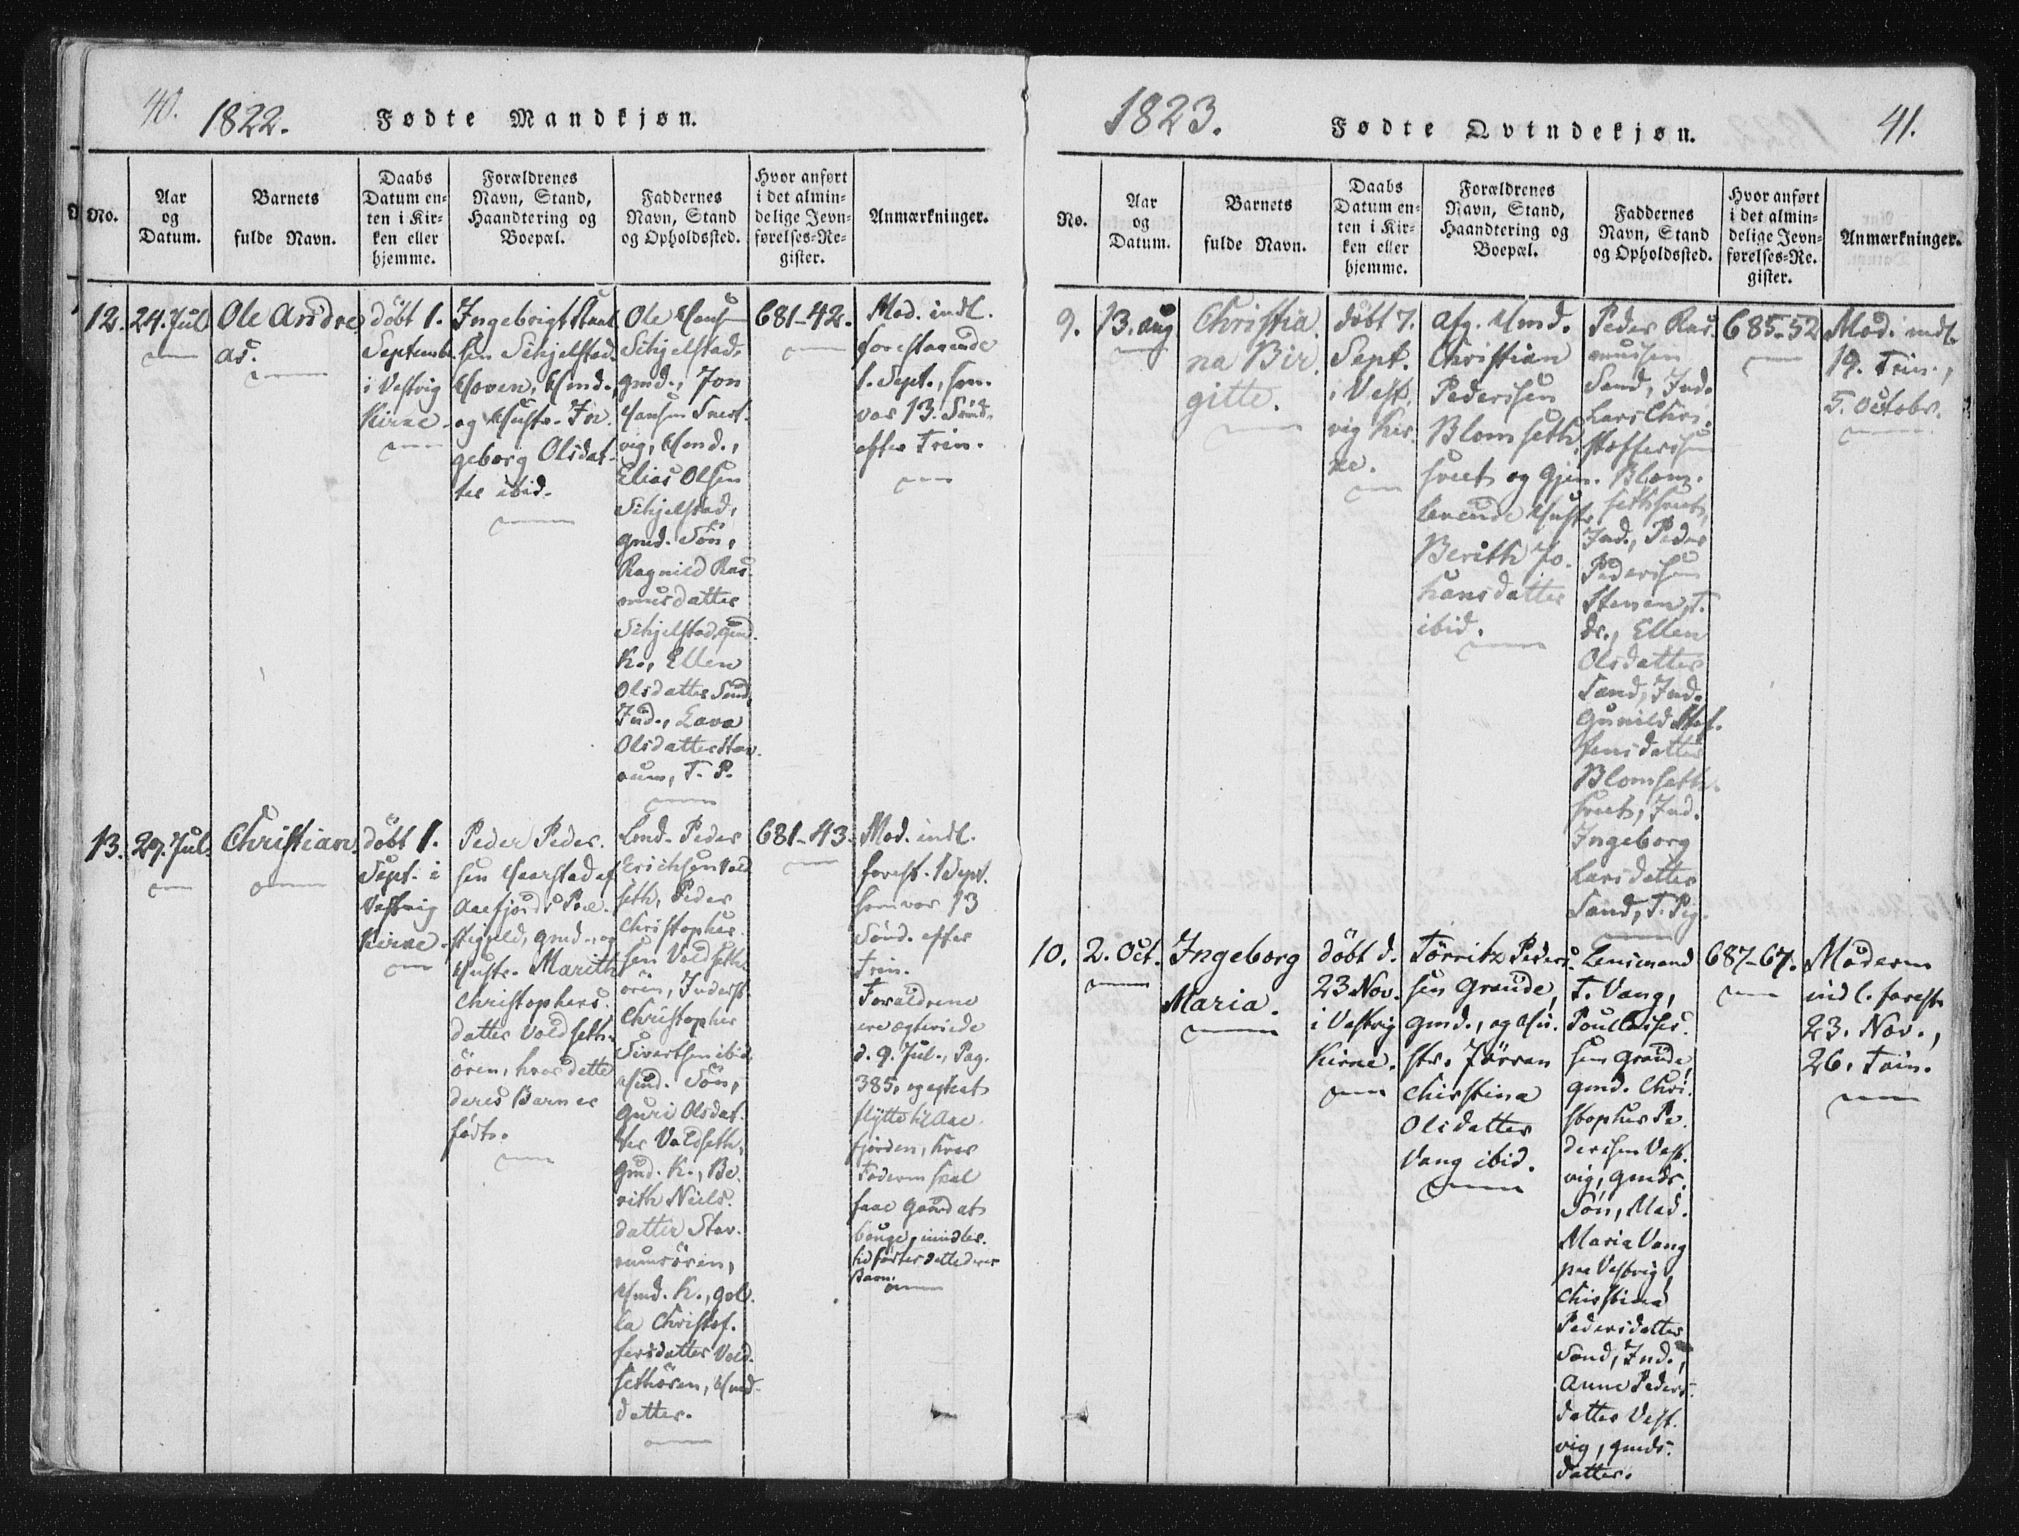 40.
1822.
Fødte Mandkjøn.
No.
Aar
og
Datum.
Barnets
fulde Navn.
Daabs
Datum en-
ten i Kir-
ken eller
hjemme.
Forældrenes
Navn, Stand,
Haandtering og
Boepæl.
Faddernes
Navn, Stand
og Opholdssted.
Hvor anført
i det almin-
delige Jevn-
førelses-Re-
gister.
Anmærkninger.
12.
24. Jul
Ole Andre
as.
døbt 1.
Septemb.
i Vestvig
Kirke.
Ingebrigt
sen Sihjelstad
Hoven, Hmd.,
og Hustr. In
geborg Olsdat-
ter ibid.
Ole Hansen
Sihjelstad,
gmd., Jon
Hansen
vig, Hmd.,
Elias Olsen
Sihjelstad,
gmd. Søn,
Ragnild Ras-
musdatter
Sihjelstad, gmd.
K., Ellen
Olsdatter Sand,
Ind., Lava
Olsdatter Stav-
rum, T. P.
681-42.
Mod. indl.
forestaaende
1. Sept., som
var 13. Sønd.
efter Trin.
13.
29. Jul.
Christian.
døbt 1.
Sept. i
Vestvig
Kirke.
Peder Peder-
sen Haarstad af
Aaefjords Præ-
stegield, gmd., og
Hustr. Marith
Christophers-
datter Voldseth-
ören, hvor dette
deres Barn er
født.
Lmd. Peder
Erichsen Vold
seth, Peder
Christopher-
sen Voldseth-
ören, Inderst.
Christopher
Sivertsen ibid.
Hmd. Søn,
Guri Olsdat-
ter Voldseth,
gmd. K., Be-
rith Niels-
datter Stav-
rumsören,
Hmd. K., Gol-
la Christof-
fersdatter Vold-
sethören, Hmd-
datter.
681-43.
Mod. indl.
forest. 1 Sept.
som var 13
Sønd. efter
Trin.
Forældrene
ere ægteviede
d. 9. Jul., Pag.
385, og agtede at
flytte til Aae-
fjorden, hvor
Faderen skal
faae Gaard at
bruge, imidler-
tid fødtes dette deres
Barn.
1823.
Fødte Qvindekjøn.
41.
No.
Aar
og
Datum.
Barnets
fulde Navn.
Daabs
Datum en-
ten i Kir-
ken eller
hjemme.
Forældrenes
Navn, Stand,
Haandtering og
Boepæl.
Faddernes
Navn, Stand
og Opholdssted.
Hvor anført
i det almin-
delige Jevn-
førelses-Re-
gister.
Anmærkninger.
9.
13. Aug
Christia
na Bir
gitte.
døbt 7.
Sept.
i Vest-
vig Kir
ke.
Afg. Hmd.
Christian
Pederssen
Blomseth
sveet og gjen-
levende Hustr.
Berith Jo-
hansdatter
ibid.
Peder Ras-
mussen
Sand, Ind.
Lars Chri-
stofferssen
Blom-
sethsveet,
Ind., Peder
Pederssen
Stenen, T.
dr., Ellen
Olsdatter
Sand, Ind.
Gunild Stef-
fensdatter
Blomseth-
sveet, Ind.
Ingeborg
Larsdatter
Sand, T. Pig.
685-52
Mod. indl.
19. Trin.,
5. Octobr.
10.
2. Oct.
Ingeborg
Maria.
døbt d.
23 Nov.
i Vestvig
Kirke.
Törritz Peders-
sen Grande,
gmd., og Hu-
str. Jörran
Christina
Olsdatter
Vang ibid.
Lensmand
T. Vang,
Poul
sen Grande,
gmd. Chri-
stopher Pe-
derssen Vest-
vig, gmds.
Søn, Mad.
Maria Vang
paa Vestvig,
Christina
Pedersdatter
Sand, Ind.,
Anne Peders-
datter Vest-
vig, gmds-
datter.
687-67.
Moderen
indl. forest.
23. Nov.,
26. Trin.